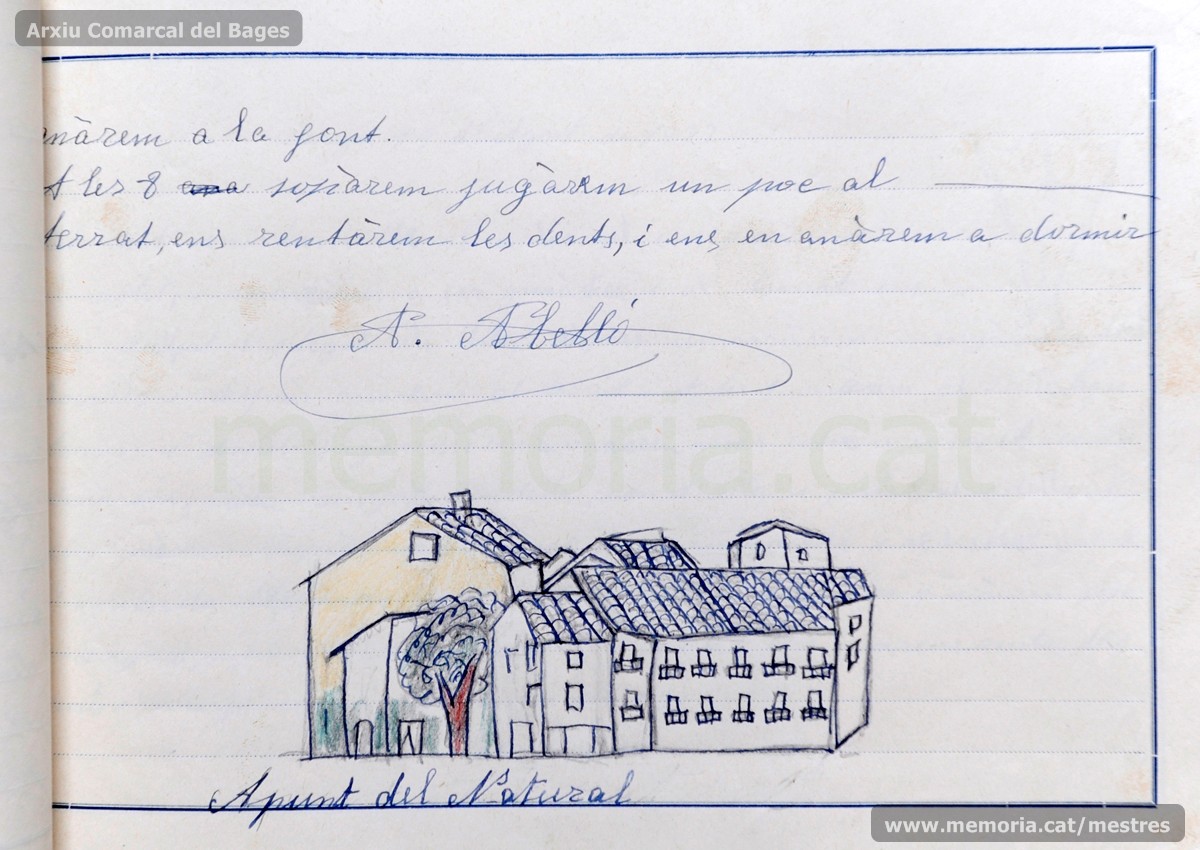 Arxiu Comarcal del Bages
anàrem a la font.
A les 8 sopàrem jugàrem un poc al
terrat, ens rentàrem les dents, i ens en anàrem a dormir
A. Abelló
memoria.cat
Apunt del Natural
www.memoria.cat/mestres